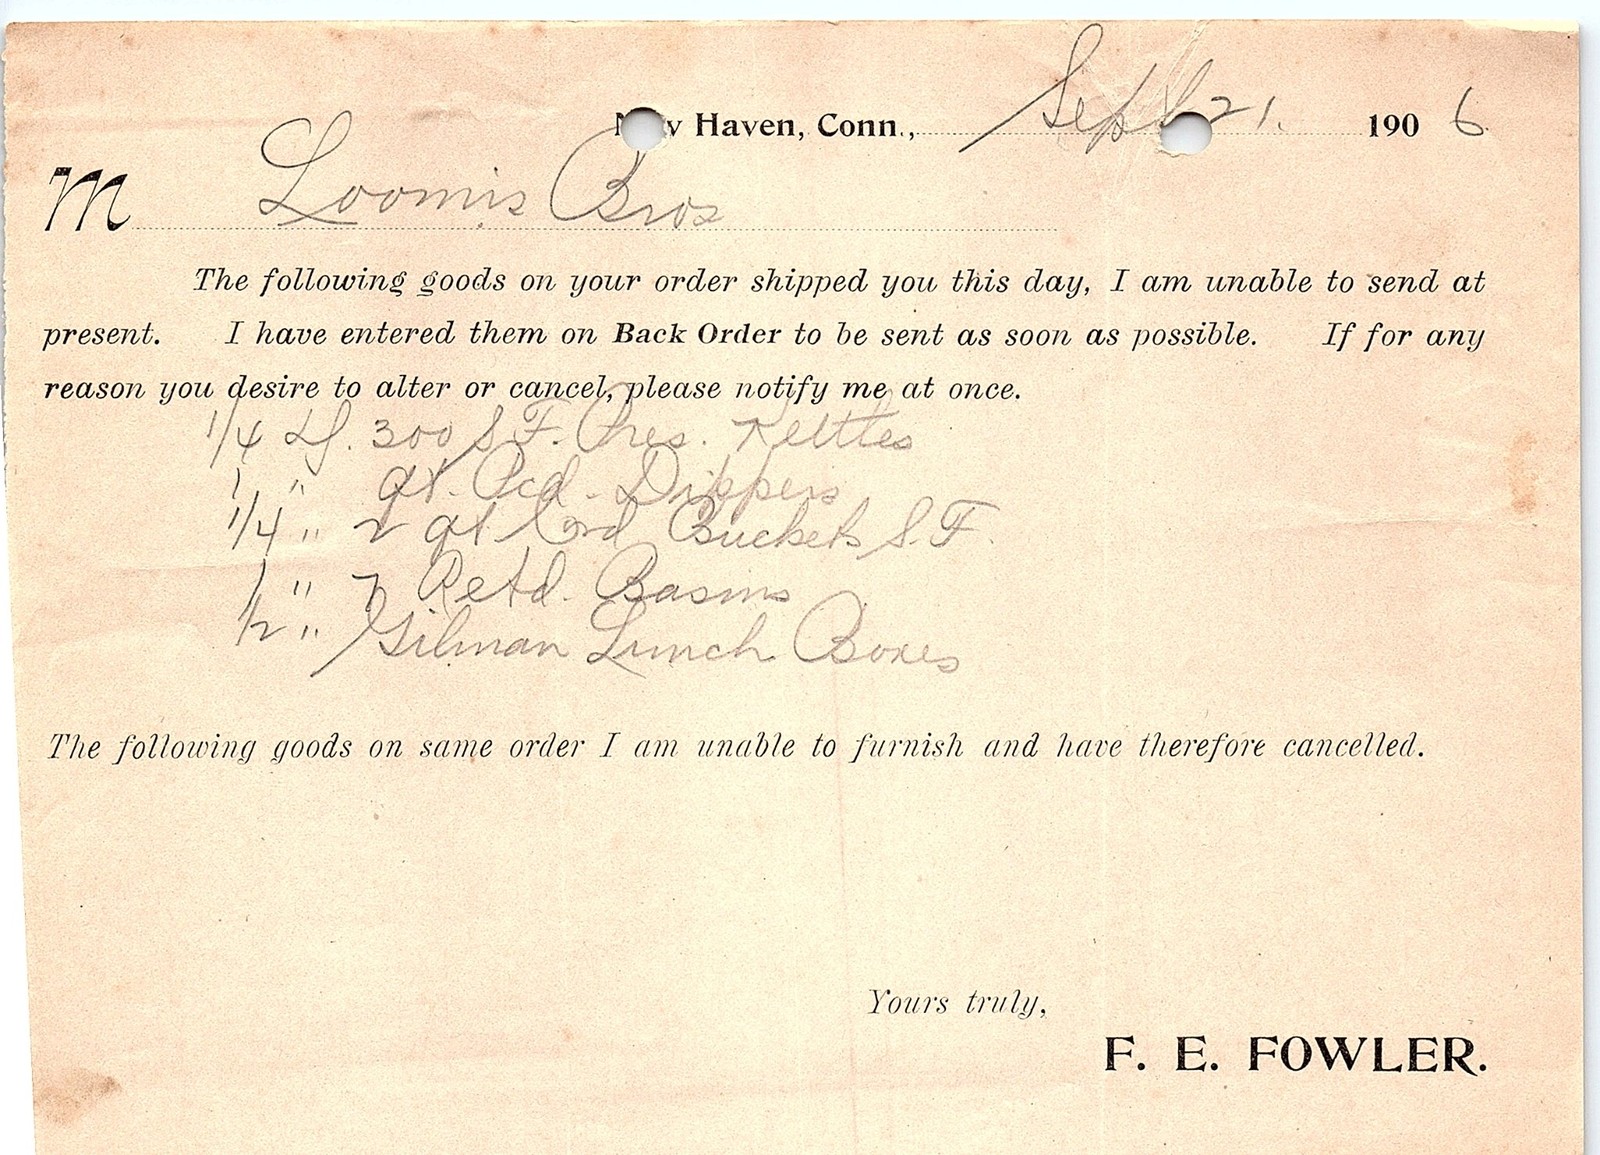 New Haven, Conn., Sept 21. 1906
M Loomis Bros
The following goods on your order shipped you this day, I am unable to send at
present. I have entered them on Back Order to be sent as soon as possible. If for any
reason you desire to alter or cancel, please notify me at once.
1/4 300 S.F. Pres. Kettles
1 " qt. Dippers
1/4 " 2 qt Buckets S.F.
1 " Retd. Basins
1/2 " Gilman Lunch Boxes
The following goods on same order I am unable to furnish and have therefore cancelled.
Yours truly,
F. E. FOWLER.